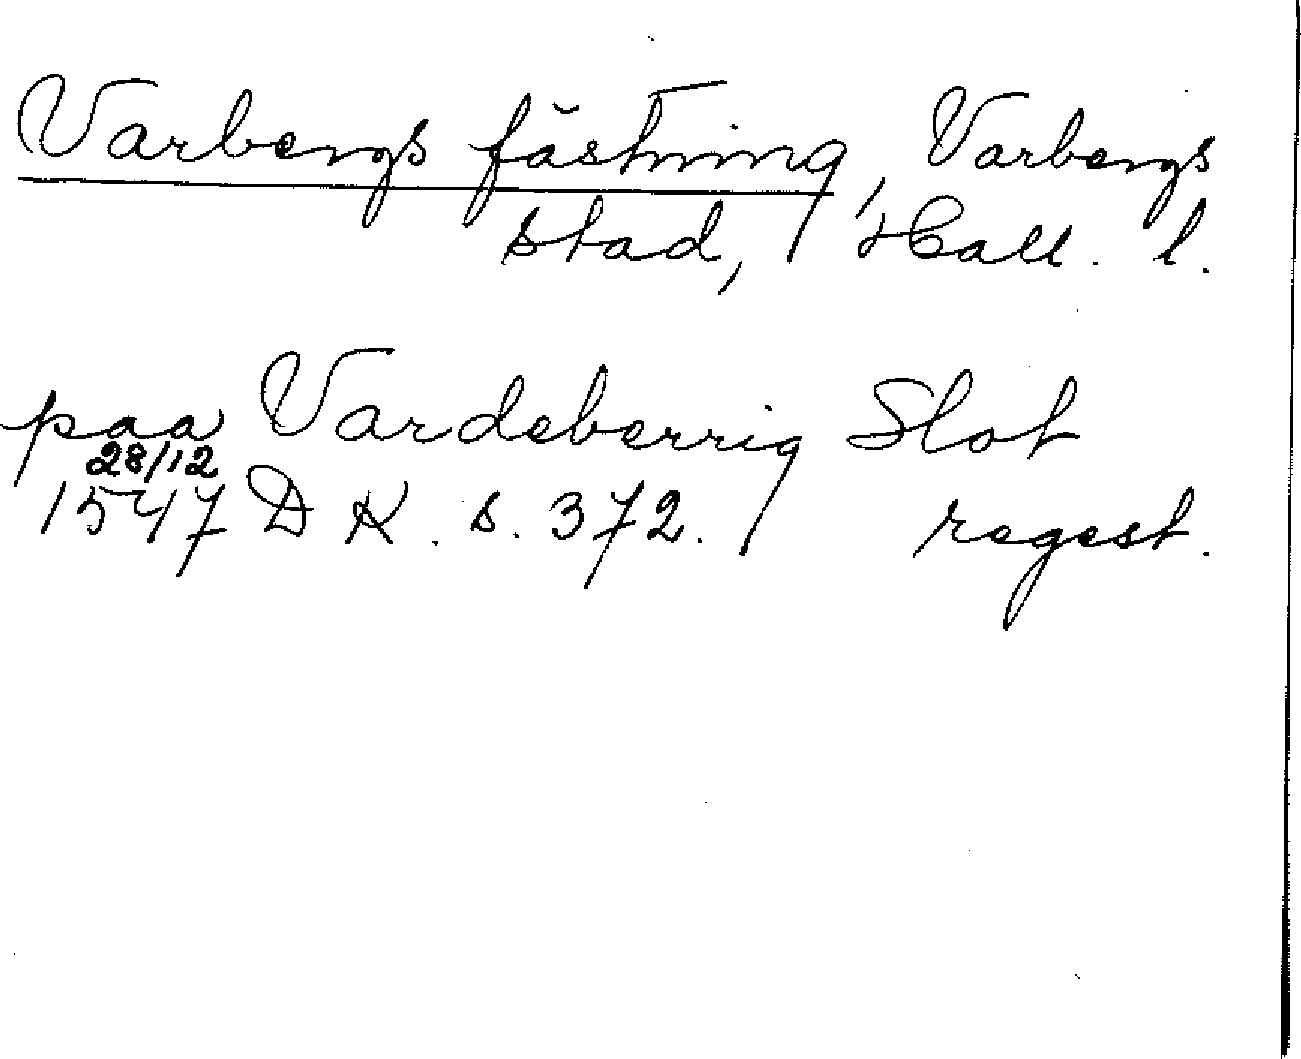 Varbergs fästning, Varbergs
stad, Hall. l.
paa Vardeberrig Slot
28/12
1547 DK. s. 372. regest.